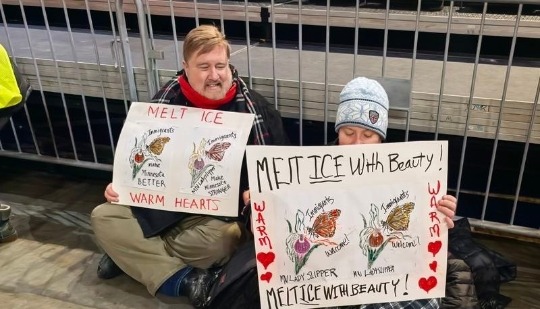 MELT ICE
Immigrants
make
Minnesota
BETTER
Immigrants
Make
Minnesota
STRONGER
WARM HEARTS
MELT ICE With Beauty!
WARM
Immigrants
Welcome!
MN LADY SLIPPER
Immigrants
Welcome!
MN LADYSLIPPER
WARM
MELT ICE WITH BEAUTY!